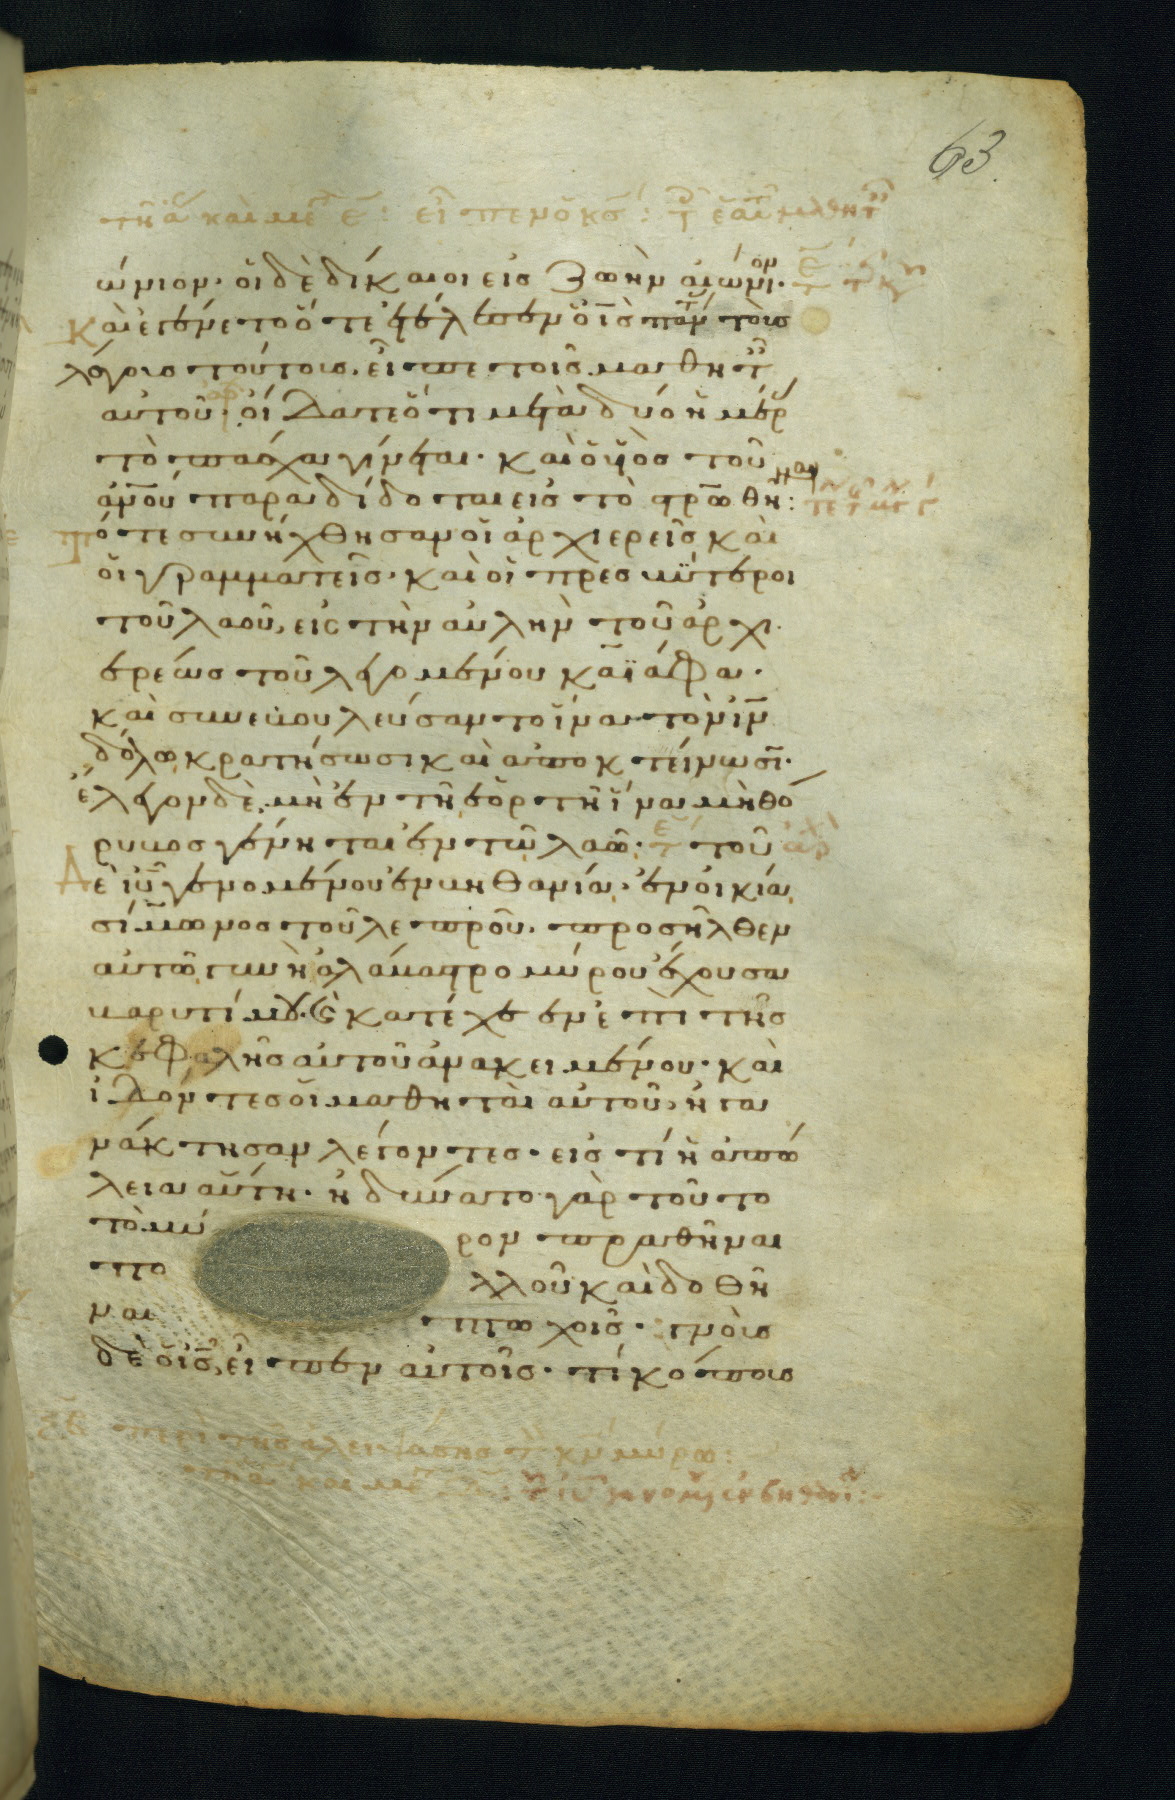 63
ώνιον· οἱ δὲ δίκαιοι εἰς ζωὴν αἰώνιον·
Καὶ ἐγένετο ὅτε ἐτέλεσεν ὁ ις πάντ τοὺς
λόγους τούτους, εἶπε τοῖς μαθητ
αὐτοῦ· οἴδατε ὅτι μετὰ δύο ἡμέρ
τὸ πάσχα γίνεται· καὶ ὁ υς τοῦ
ανου παραδίδοται εἰς τὸ στρωθῆναι:
Τότε συνήχθησαν οἱ ἀρχιερεῖς καὶ
οἱ γραμματεῖς· καὶ οἱ πρεσβύτεροι
τοῦ λαοῦ, εἰς τὴν αὐλὴν τοῦ ἀρχι
ερέως τοῦ λεγομένου καϊάφα·
καὶ συνεβουλεύσαντο ἵνα τὸν ιν
δόλω κρατήσωσι καὶ ἀποκτείνωσι·
ἔλεγον δὲ, μὴ ἐν τῆ ἑορτῆ ἵνα μὴ θό
ρυβος γένηται ἐν τῶ λαῶ· τοῦ
Δὲ ιυ γενομένου ἐν βηθανία, ἐν οἰκία
σίμωνος τοῦ λεπροῦ, προσῆλθεν
αὐτῶ γυνὴ ἀλάβαστρον μύρου ἔχουσα
βαρυτίμου· καὶ κατέχεεν ἐπὶ τῆς
κεφαλῆς αὐτοῦ ἀνακειμένου· καὶ
ἰδόντες οἱ μαθηταὶ αὐτοῦ, ἠγα
νάκτησαν λέγοντες· εἰς τί ἡ ἀπώ
λεια αὕτη· ἠδύνατο γὰρ τοῦτο
τὸ μύ ρον πραθῆναι
πο λλοῦ καὶ δοθῆ
ναι πτωχοῖς· γνοὺς
δὲ ὁ ις, εἶπεν αὐτοῖς· τί κόπους
περὶ τῆς ἀλειψάσης τ κν μύρω: